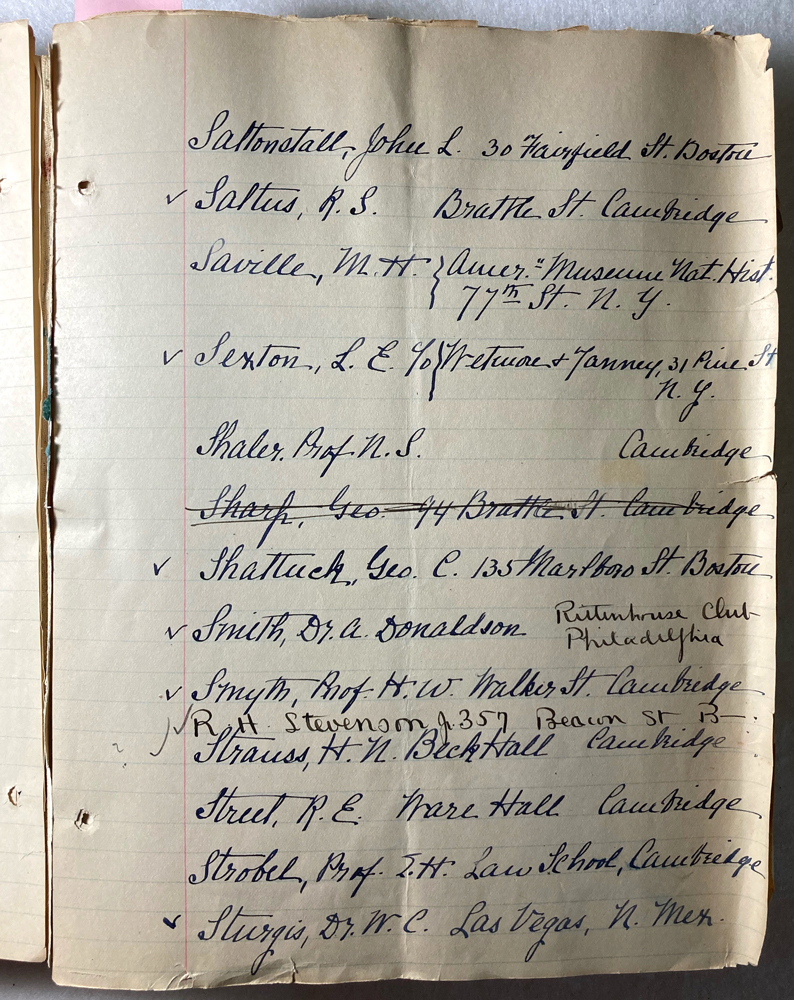 Saltonstall, John L. 30 Fairfield St. Boston
✓ Saltus, R. S. Brattle St. Cambridge
Saville, M. H. } Amer. Museum Nat. Hist.
77th St. N. Y.
✓ Sexton, L. E. c/o { Wetmore & Jenney, 31 Pine St
N. Y.
Shaler. Prof. N. S. Cambridge
Sharp, Geo. 94 Brattle St. Cambridge
✓ Shattuck, Geo. C. 135 Marlboro St. Boston
✓ Smith, Dr. A. Donaldson Rittenhouse Club
Philadelphia
✓ Smyth, Prof. H. W. Walker St. Cambridge
✓ R. H. Stevenson Jr. 357 Beacon St B—.
Strauss, H. N. Beck Hall Cambridge
Street, R. E. Ware Hall Cambridge
Strobel, Prof. E. H. Law School, Cambridge
✓ Sturgis, Dr. W. C. Las Vegas, N. Mex.